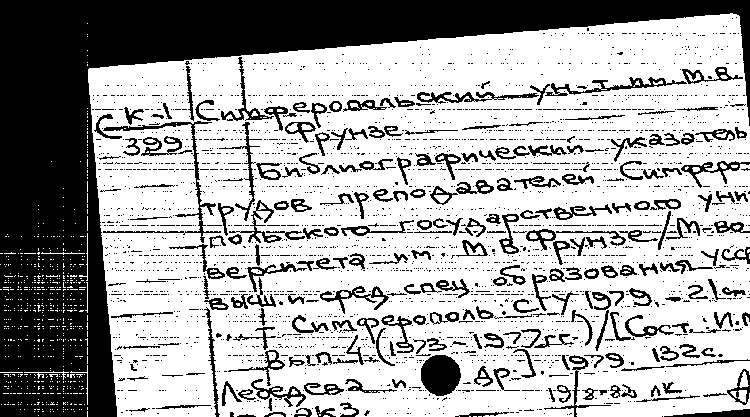 К-1 Симферопольский ун-т им. М.В.
399 Фрунзе.
Библиографический указатель
трудов преподавателей Симферо-
польского государственного уни-
верситета им. М.В. Фрунзе / М-во
высш. и сред. спец. образования УССР
... – Симферополь: СГУ, 1979. – 21 см
Вып. 4. (1973 – 1977 гг.) / [Сост.: И.П.
Лебедева и др.]. 1979. 132 с.
19/8-82 лк
экз.